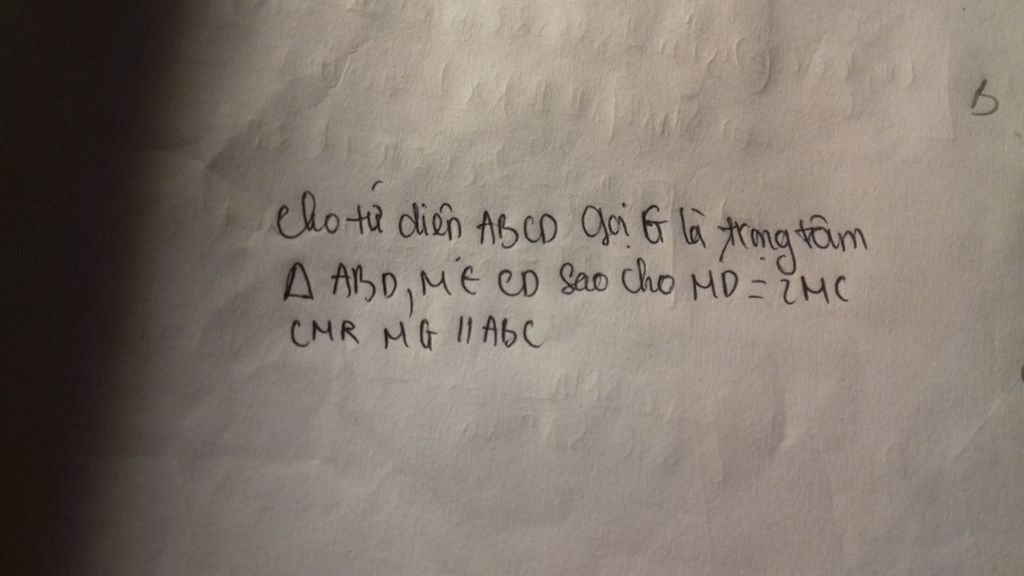 Cho tứ diện ABCD gọi G là trọng tâm
Δ ABD, M ∈ CD sao cho MD = 2MC
CMR MG // ABC